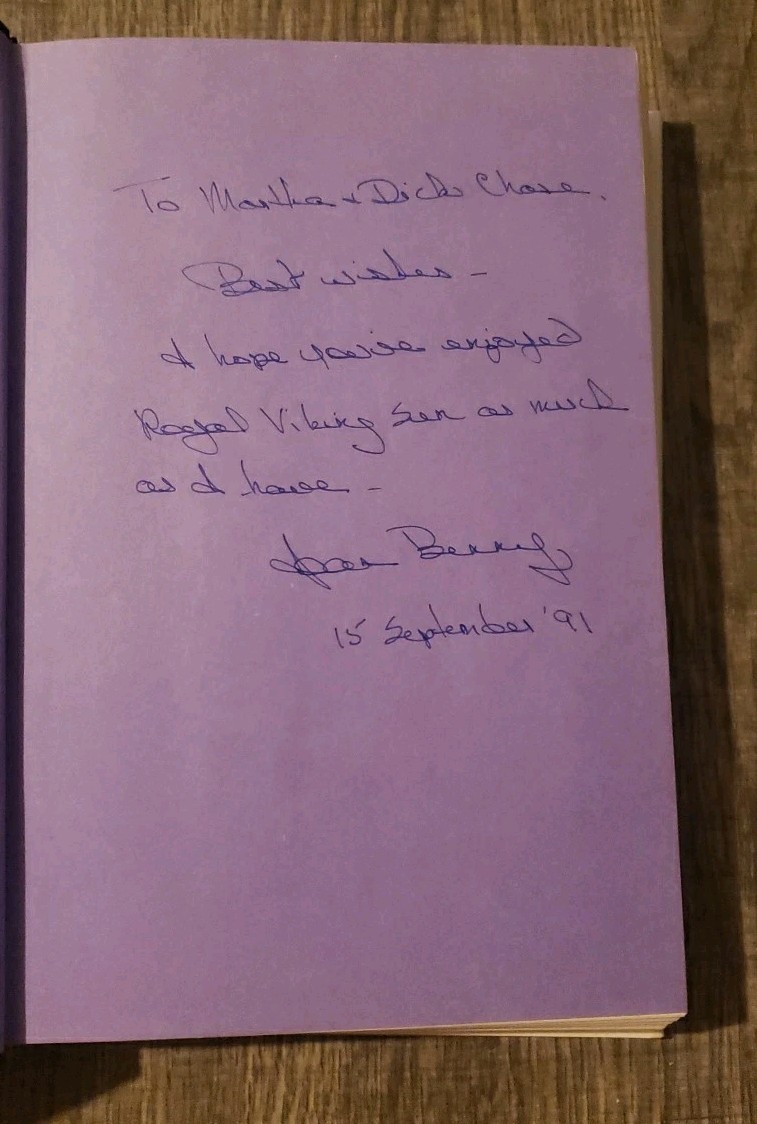 To Martha + Dick Chase.
Best wishes -
I hope you've enjoyed
Royal Viking Sun as much
as I have -
Joan Benny
15 September '91